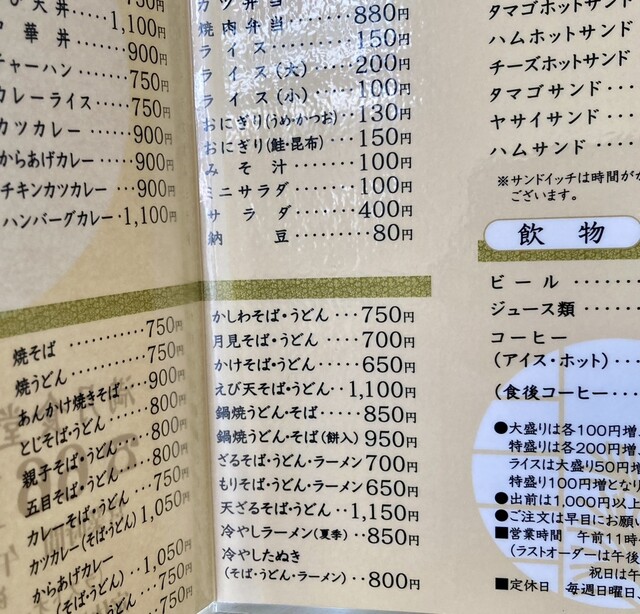 び天丼 1,100円
中華丼 900円
チャーハン 750円
カレーライス 750円
カツカレー 900円
からあげカレー 900円
チキンカツカレー 900円
ハンバーグカレー 1,100円
焼そば 750円
焼うどん 750円
あんかけ焼きそば 900円
とじそば・うどん 800円
親子そば・うどん 800円
五目そば・うどん 800円
カレーそば・うどん 750円
カツカレー(そば・うどん) 1,050円
からあげカレー
(そば・うどん) 1,050円
カツ弁当
焼肉弁当 880円
ライス 150円
ライス(大) 200円
ライス(小) 100円
おにぎり(うめ・かつお) 130円
おにぎり(鮭・昆布) 150円
みそ汁 100円
ミニサラダ 100円
サラダ 400円
納豆 80円
かしわそば・うどん 750円
月見そば・うどん 700円
かけそば・うどん 650円
えび天そば・うどん 1,100円
鍋焼うどん・そば 850円
鍋焼うどん・そば(餅入) 950円
ざるそば・うどん・ラーメン 700円
もりそば・うどん・ラーメン 650円
天ざるそば・うどん 1,150円
冷やしラーメン(夏季) 850円
冷やしたぬき
(そば・うどん・ラーメン) 800円
タマゴホットサンド
ハムホットサンド
チーズホットサンド
タマゴサンド
ヤサイサンド
ハムサンド
※サンドイッチは時間がか
ございます。
飲物
ビール
ジュース類
コーヒー
(アイス・ホット)
(食後コーヒー
●大盛りは各100円増、
特盛りは各200円増、
ライスは大盛り50円増
特盛り100円増となり
●出前は1,000円以上
●ご注文は早目にお願い
■営業時間 午前11時
(ラストオーダーは午後
祝日は午
■定休日 毎週日曜日、